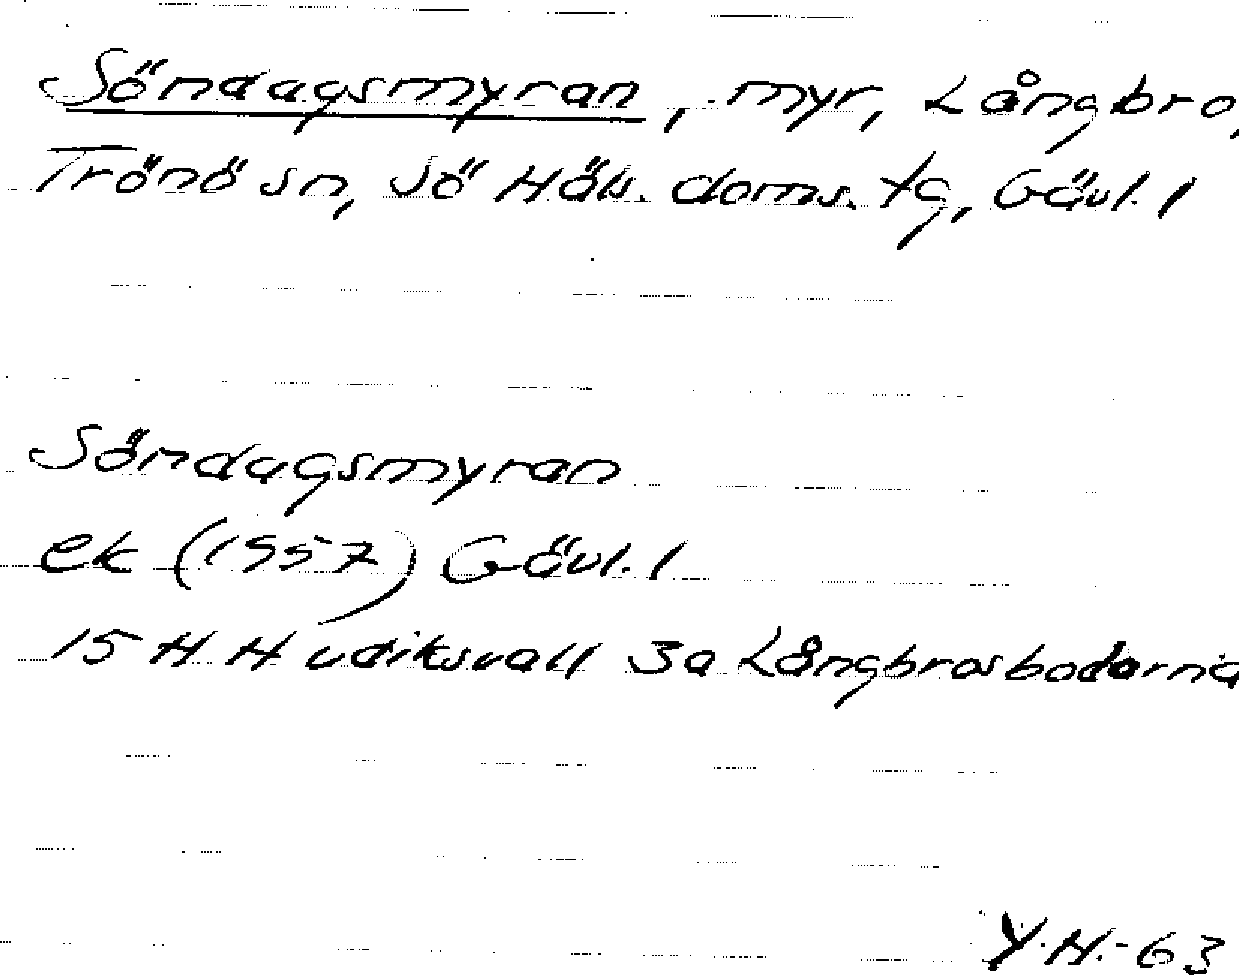 Söndagsmyran, myr, Långbro,
Trönö sn, Sö Häls. doms. tg, Gävl. l
Söndagsmyran
ek (1957) Gävl. l
15 H. Hudiksvall 3a Långbrosbodarna
Y.H.-63